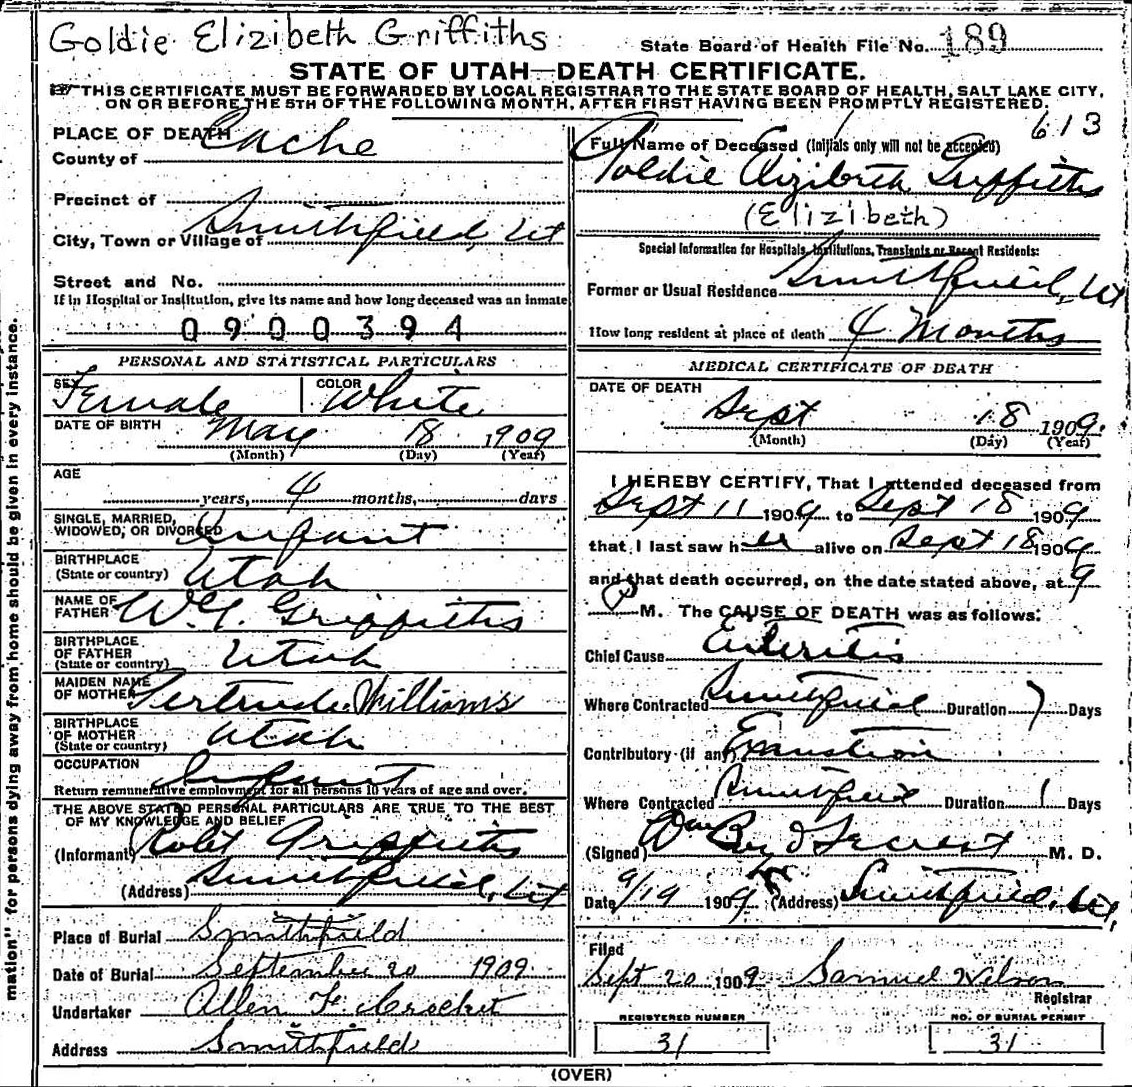 Goldie Elizibeth Griffiths
State Board of Health File No. 189
STATE OF UTAH—DEATH CERTIFICATE.
THIS CERTIFICATE MUST BE FORWARDED BY LOCAL REGISTRAR TO THE STATE BOARD OF HEALTH, SALT LAKE CITY,
ON OR BEFORE THE 5TH OF THE FOLLOWING MONTH, AFTER FIRST HAVING BEEN PROMPTLY REGISTERED.
613
PLACE OF DEATH
County of Cache
Precinct of
City, Town or Village of Smithfield, Ut
Street and No.
If in Hospital or Institution, give its name and how long deceased was an inmate
0900394
PERSONAL AND STATISTICAL PARTICULARS
SEX Female COLOR White
DATE OF BIRTH May 18 1909
(Month) (Day) (Year)
AGE
years, 4 months, days
SINGLE, MARRIED,
WIDOWED, OR DIVORCED Infant
BIRTHPLACE
(State or country) Utah
NAME OF
FATHER W. G. Griffiths
BIRTHPLACE
OF FATHER
(State or country) Utah
MAIDEN NAME
OF MOTHER Gertrude Williams
BIRTHPLACE
OF MOTHER
(State or country) Utah
OCCUPATION Infant
Return remunerative employment for all persons 10 years of age and over.
THE ABOVE STATED PERSONAL PARTICULARS ARE TRUE TO THE BEST
OF MY KNOWLEDGE AND BELIEF
(Informant) Robt Griffiths
(Address) Smithfield, Ut
Place of Burial Smithfield
Date of Burial September 20 1909
Undertaker Allen F. Crocket
Address Smithfield
Full Name of Deceased (Initials only will not be accepted)
Goldie Elizibeth Griffiths
(Elizibeth)
Special Information for Hospitals, Institutions, Transients or Recent Residents:
Former or Usual Residence Smithfield, Ut
How long resident at place of death 4 Months
MEDICAL CERTIFICATE OF DEATH
DATE OF DEATH
Sept 18 1909.
(Month) (Day) (Year)
I HEREBY CERTIFY, That I attended deceased from
Sept 11 1909 to Sept 18 1909
that I last saw her alive on Sept 18 1909
and that death occurred, on the date stated above, at 9
P M. The CAUSE OF DEATH was as follows:
Chief Cause Enteritis
Where Contracted Smithfield Duration 7 Days
Contributory (if any) Exaustion
Where Contracted Smithfield Duration 1 Days
(Signed) Wm M. D.
Date 9/19 1909 (Address) Smithfield, Ut,
Filed
Sept 20 1909 Samuel Nelson
Registrar
REGISTERED NUMBER
31
NO. OF BURIAL PERMIT
31
(OVER)
mation" for persons dying away from home should be given in every instance.